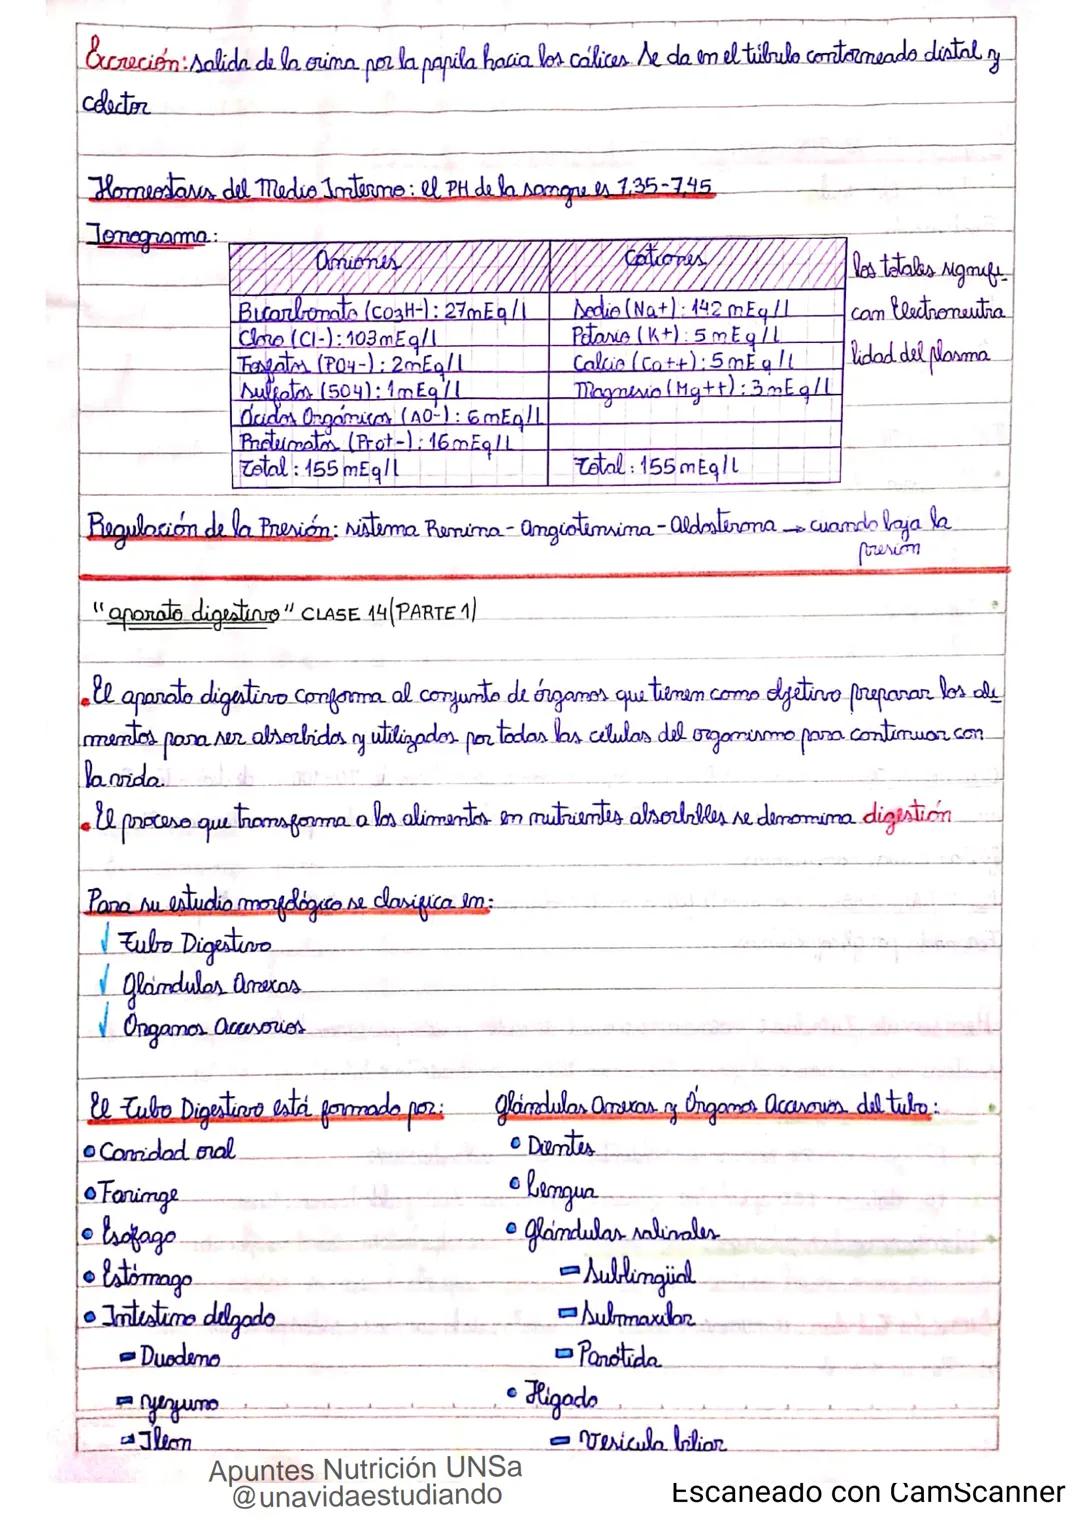 Excreción: salida de la orina por la papila hacia los cálices. Se da en el túbulo contorneado distal y
colector
Homeostasis del Medio Interno: el PH de la sangre es 7,35-7,45
Ionograma:
Aniones Cationes
Bicarbonato (CO3H-): 27mEq/l Sodio (Na+): 142 mEq/l
Cloro (Cl-): 103mEq/l Potasio (K+): 5 mEq/l
Fosfatos (PO4-): 2mEq/l Calcio (Ca++): 5mEq/l
Sulfatos (SO4): 1mEq/l Magnesio (Mg++): 3mEq/l
Ácidos Orgánicos (AO-): 6mEq/l
Proteinatos (Prot-): 16mEq/l
Total: 155mEq/l Total: 155mEq/l
los totales signifi
can Electroneutra
lidad del plasma
Regulación de la Presión: sistema Renina-Angiotensina-Aldosterona → cuando baja la
presión
"aparato digestivo" CLASE 14 (PARTE 1)
El aparato digestivo conforma al conjunto de órganos que tienen como objetivo preparar los ali
mentos para ser absorbidos y utilizados por todas las células del organismo para continuar con
la vida.
El proceso que transforma a los alimentos en nutrientes absorbibles se denomina digestión
Para su estudio morfológico se clasifica en:
✓ Tubo Digestivo
✓ Glándulas Anexas
✓ Órganos Accesorios
El Tubo Digestivo está formado por:
• Cavidad oral
• Faringe
• Esófago
• Estómago
• Intestino delgado
- Duodeno
- Yeyuno
- Íleon
Glándulas Anexas y Órganos Accesorios del tubo:
• Dientes
• Lengua
• Glándulas salivales
- Sublingüal
- Submaxilar
- Parótida
• Hígado
- Vesícula biliar
Apuntes Nutrición UNSa
@unavidaestudiando
Escaneado con CamScanner